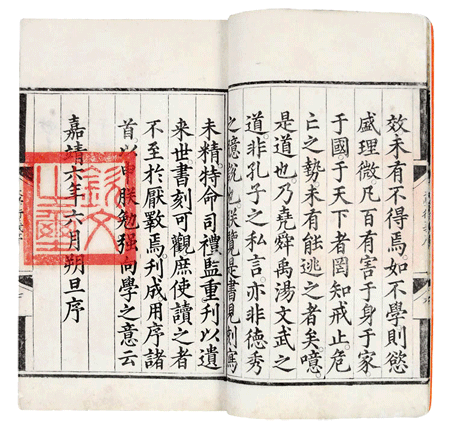 效未有不得焉如不學則慾
盛理微凡百有害于身于家
于國于天下者罔知戒止危
亡之勢未有能逃之者矣噫
是道也乃堯舜禹湯文武之
道非孔子之私言亦非德秀
之臆說也朕覽是書見刻寫
未精特命司禮監重刊以遺
来世書刻可觀庶使讀之者
不至於厭斁焉刊成用序諸
首以申朕勉强向學之意云
嘉靖六年六月朔旦序
欽文
之璽